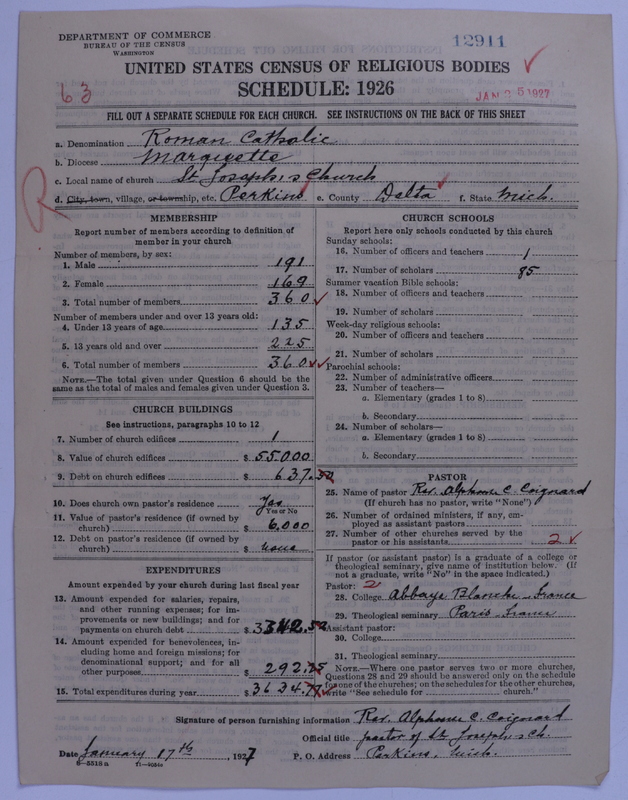 DEPARTMENT OF COMMERCE
BUREAU OF THE CENSUS
WASHINGTON
12911
UNITED STATES CENSUS OF RELIGIOUS BODIES
SCHEDULE: 1926
63
JAN 25 1927
FILL OUT A SEPARATE SCHEDULE FOR EACH CHURCH. SEE INSTRUCTIONS ON THE BACK OF THIS SHEET
a. Denomination Roman Catholic
b. Diocese Marquette
c. Local name of church St Joseph's Church
d. City, town, village, or township, etc. Perkins e. County Delta f. State Mich.
R
MEMBERSHIP
Report number of members according to definition of
member in your church
Number of members, by sex:
1. Male 191
2. Female 169
3. Total number of members 360
Number of members under and over 13 years old:
4. Under 13 years of age 135
5. 13 years old and over 225
6. Total number of members 360
NOTE.—The total given under Question 6 should be the
same as the total of males and females given under Question 3.
CHURCH BUILDINGS
See instructions, paragraphs 10 to 12
7. Number of church edifices 1
8. Value of church edifices $ 55.000
9. Debt on church edifices $ 637.
10. Does church own pastor's residence Yes
Yes or No
11. Value of pastor's residence (if owned by
church) $ 6,000
12. Debt on pastor's residence (if owned by
church) $ none
EXPENDITURES
Amount expended by your church during last fiscal year
13. Amount expended for salaries, repairs,
and other running expenses; for im-
provements or new buildings; and for
payments on church debt $ 3342.52
14. Amount expended for benevolences, in-
cluding home and foreign missions; for
denominational support; and for all
other purposes $ 292.25
15. Total expenditures during year $ 3624.77
CHURCH SCHOOLS
Report here only schools conducted by this church
Sunday schools:
16. Number of officers and teachers 1
17. Number of scholars 85
Summer vacation Bible schools:
18. Number of officers and teachers
19. Number of scholars
Week-day religious schools:
20. Number of officers and teachers
21. Number of scholars
Parochial schools:
22. Number of administrative officers
23. Number of teachers—
a. Elementary (grades 1 to 8)
b. Secondary
24. Number of scholars—
a. Elementary (grades 1 to 8)
b. Secondary $
PASTOR
25. Name of pastor Rev. Alphonse C. Coignard
(If church has no pastor, write "None")
26. Number of ordained ministers, if any, em-
ployed as assistant pastors
27. Number of other churches served by the
pastor or his assistants 2
If pastor (or assistant pastor) is a graduate of a college or
theological seminary, give name of institution below. (If
not a graduate, write "No" in the space indicated.)
Pastor: 2
28. College Abbaye Blanche France
29. Theological seminary Paris France
Assistant pastor:
30. College
31. Theological seminary
NOTE.—Where one pastor serves two or more churches,
Questions 28 and 29 should be answered only on the schedule
for one of the churches; on the schedules for the other churches,
write "See schedule for church."
Signature of person furnishing information Rev. Alphonse C. Coignard
Official title pastor of St Joseph's Ch.
Date January 17th, 1927 P. O. Address Perkins, Mich.
8—5518a 11—4054c